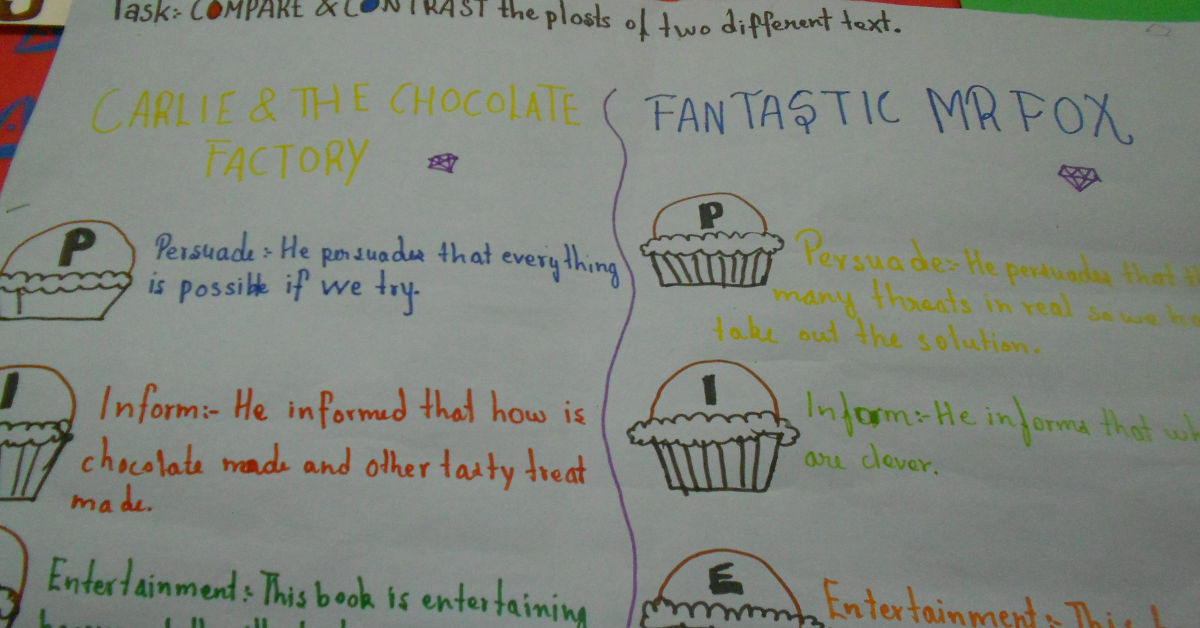 Task:- COMPARE & CONTRAST the plosts of two different text.
CARLIE & THE CHOCOLATE
FACTORY
P
Persuade:- He persuades that everything
is possible if we try.
I
Inform:- He informed that how is
chocolate made and other tasty treat
made.
Entertainment:- This book is entertaining
FANTASTIC MR FOX
P
Persuade:- He persuades that
many threats in real so we
take out the solution.
I
Inform:- He informs that
are clever.
E
Entertainment:- This